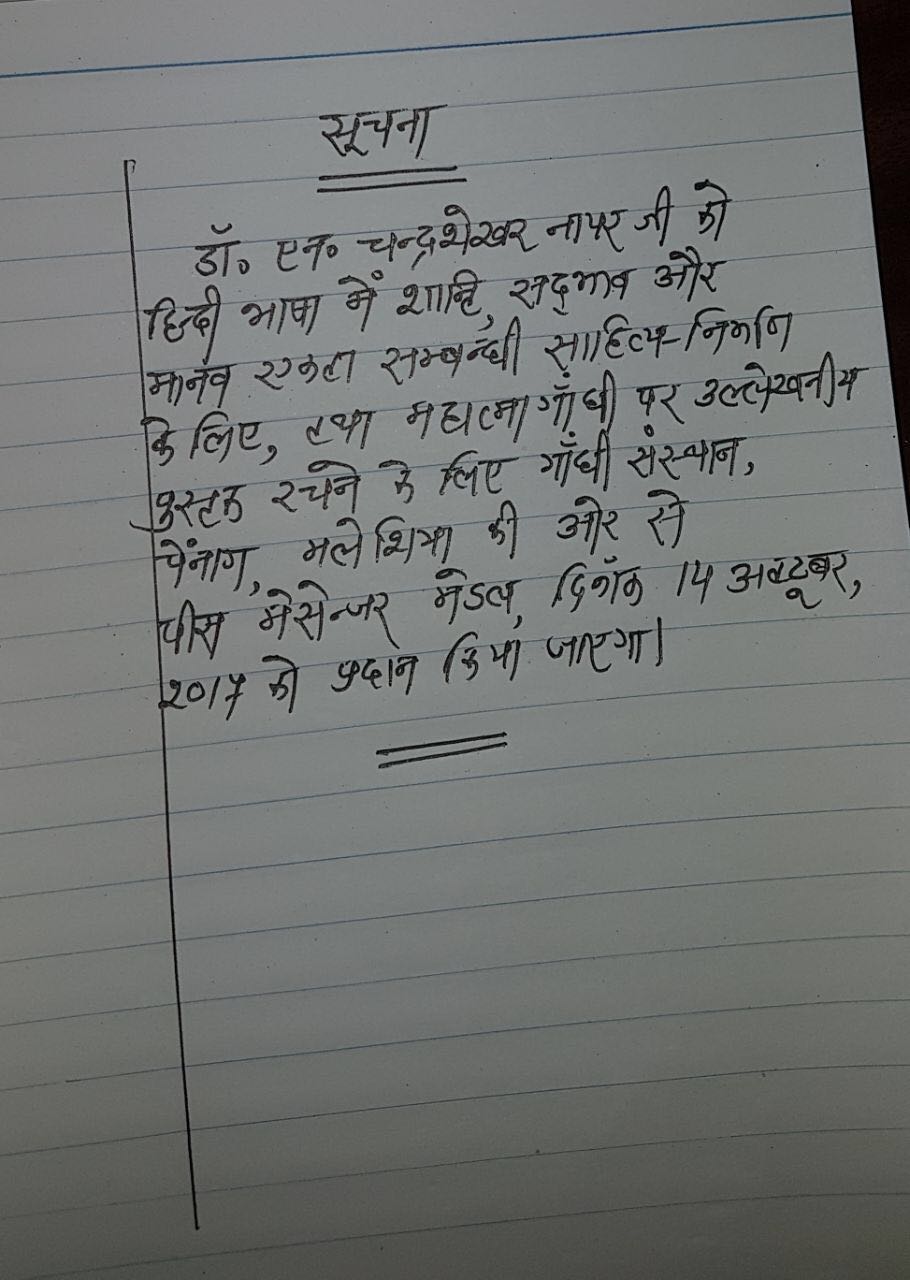 सूचना
डॉ० एन० चन्द्रशेखर नायर जी को
हिन्दी भाषा में शान्ति, सद्भाव और
मानव एकता सम्बन्धी साहित्य-निर्माण
के लिए, तथा महात्मा गाँधी पर उल्लेखनीय
पुस्तक रचने के लिए गाँधी संस्थान,
पेंनाग, मलेशिया की ओर से
पीस मेसेन्जर मेडल, दिनाँक 14 अक्टूबर,
२०17 को प्रदान किया जाएगा।